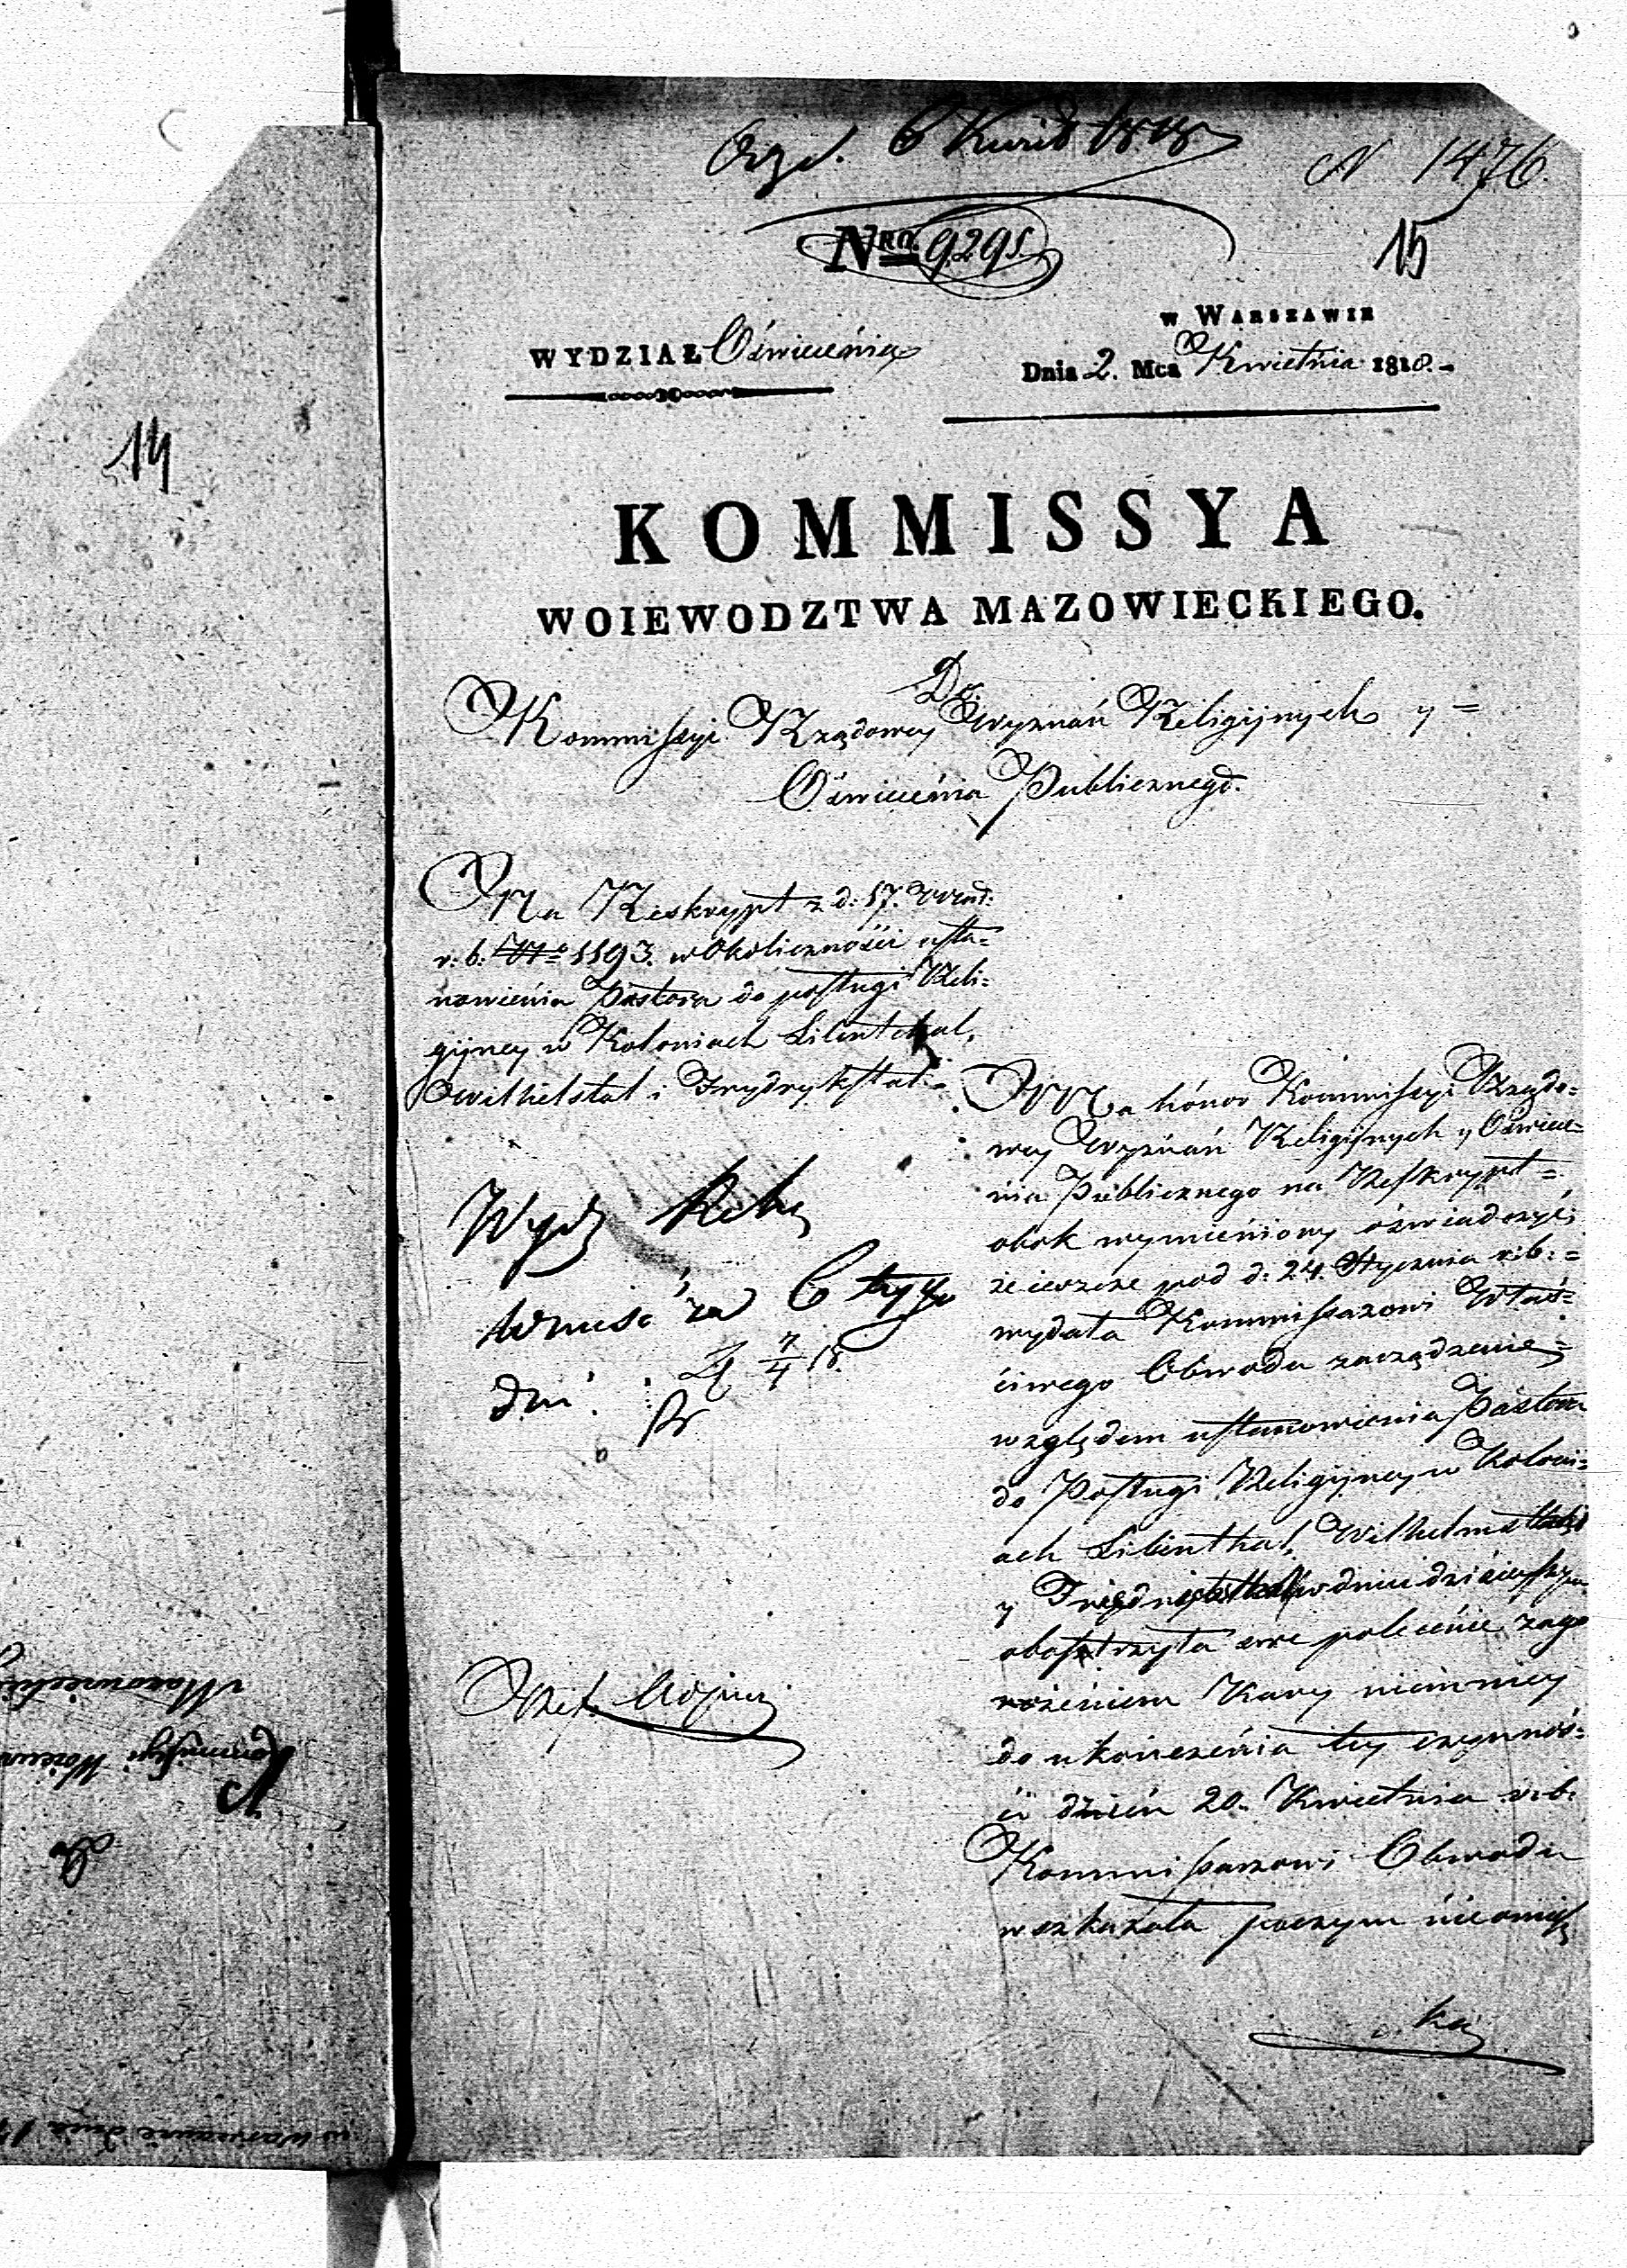 6 Kwiet 1818
N 1476.
Nro. 9291.
15
w Warszawie
WYDZIAŁ Oświecenia
Dnia 2. Mca Kwietnia 1818.-
14
KOMMISSYA
WOIEWODZTWA MAZOWIECKIEGO.
Do
Kommissyi Rządowey Wyznań Religijnych y =
Oświecenia Publicznego.
Na Reskrypt z d: 17.
r: b: No 1193. w okoliczności usta=
nowienia Pastora do posługi Reli=
gijney w Koloniach Lilinthal,
Wilhelstal i Frydrykstal.
Ma honor Kommissyi Rządo=
wey Wyznań Religijnych y Oświece=
nia Publicznego na Reskrypt =
obok wymieniony oświadczyć;
że ieszcze pod d: 24. Stycznia r: b: =
wydała Kommissarzowi Właś=
ciwego Obwodu zarządzenie =
względem ustanowienia Pastora
do Posługi Religijney w Koloni=
ach Lilinthal, Wilhelmsthal
y w dniu dzisieyszym
obostrzyła swe polecenie zagro
rożeniem Kary niemniey
do ukończenia tey czynnoś=
ci dzień 20. Kwietnia r: b:
Kommissarzowi Obwodu
wskazała poczym nieomiesz
ka
Wydz
wniesć za 6 trzy
dni.
7/4 18.
Józef
Mazowieckiey
Kommissyi Woiew
Do
w Warszawie dnia